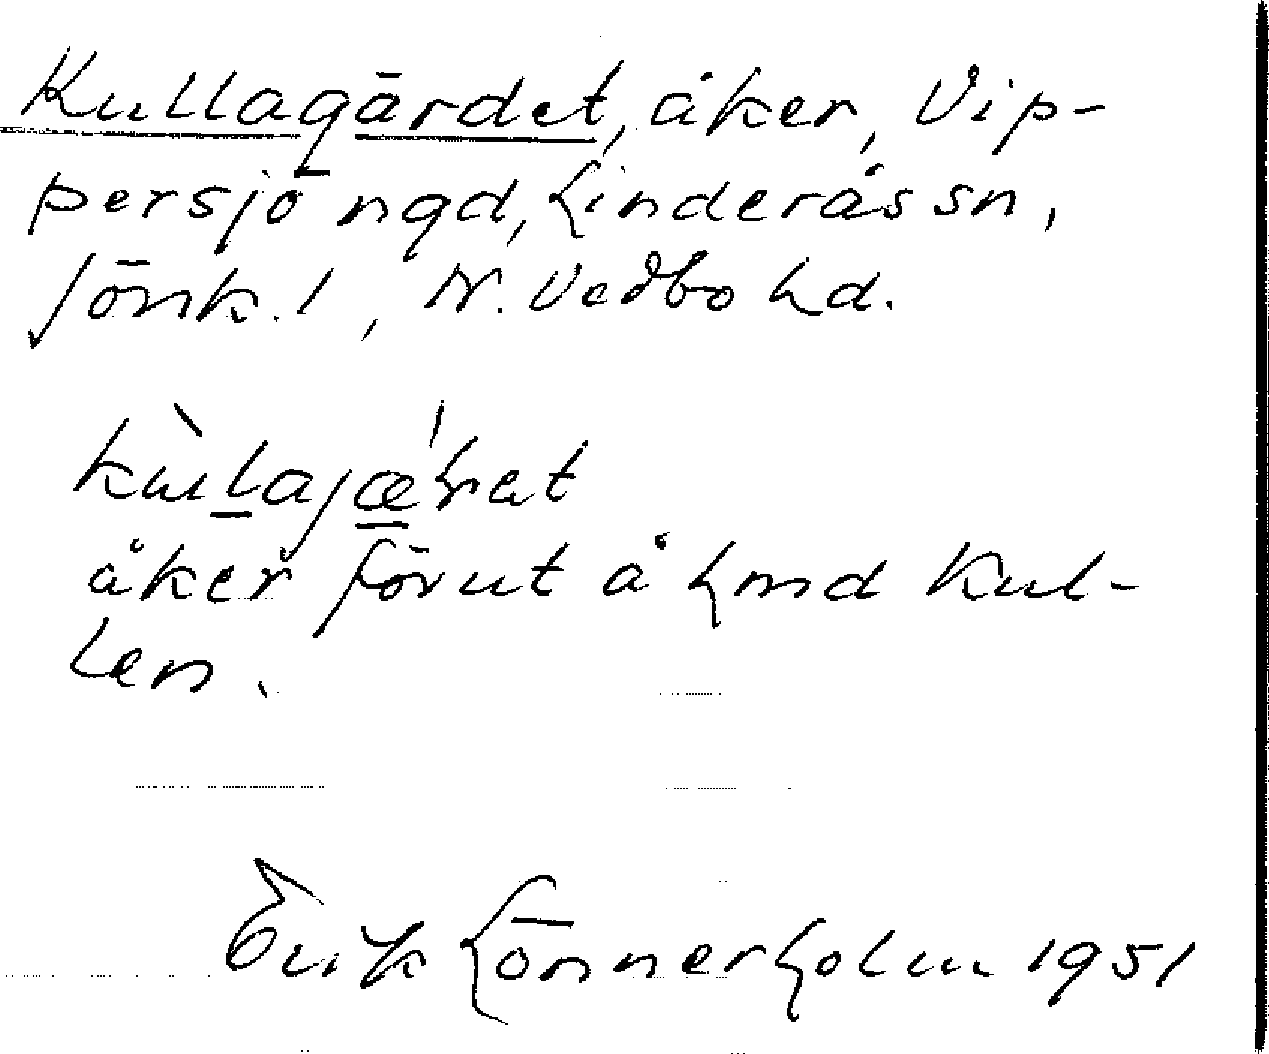 Kullagärdet, åker, Vip-
persjö ngd, Linderås sn,
Jönk. l, N. Vedbo hd.
åker förut å hmd Kul-
len.
Erik Lönnerholm 1951